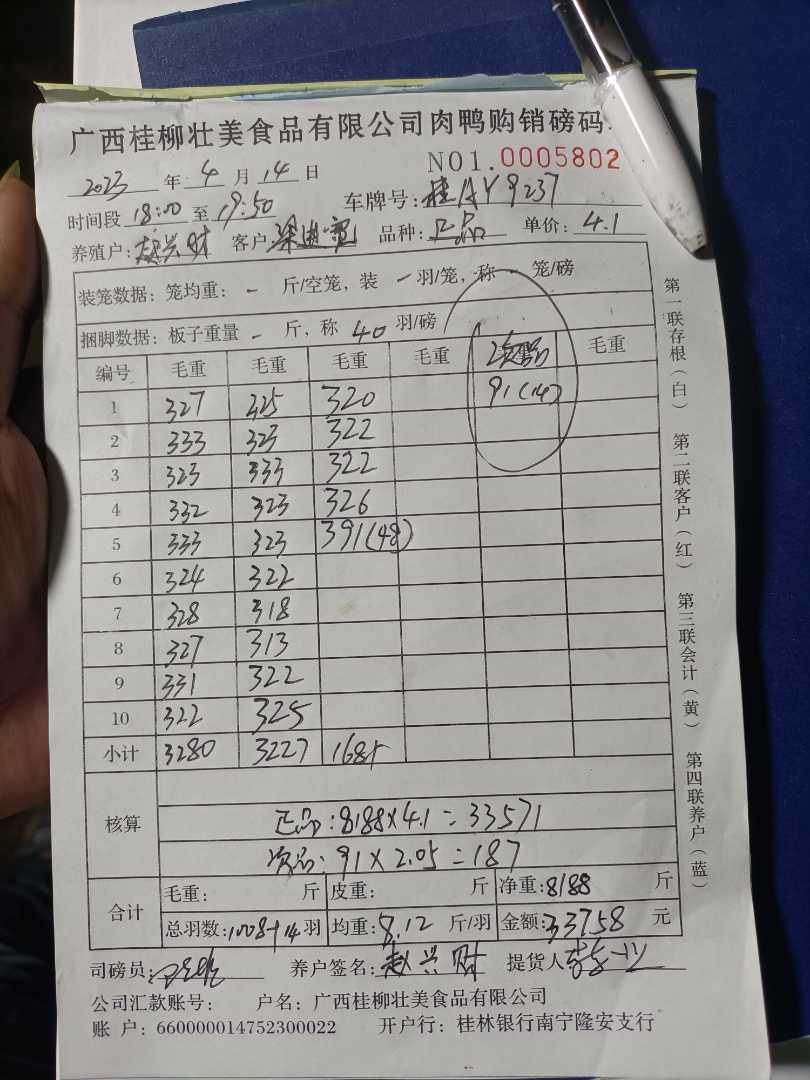 广西桂柳壮美食品有限公司肉鸭购销磅码
NO1.0005802
2023 年 4 月 14 日
时间段 18:00 至 19:50 车牌号: 桂AY9237
养殖户: 赵兴财 客户 品种: 正品 单价: 4.1
装笼数据: 笼均重: - 斤/空笼, 装 - 羽/笼, 称 - 笼/磅
捆脚数据: 板子重量 - 斤, 称 40 羽/磅
编号 毛重 毛重 毛重 毛重 次品 毛重
1 327 325 320 91(14)
2 333 323 322
3 323 333 322
4 332 323 326
5 333 323 391(48)
6 324 322
7 328 318
8 327 313
9 331 322
10 322 325
小计 3280 3227 1681
核算
正品: 8188×4.1=33571
次品: 91×2.05=187
合计 毛重: 斤 皮重: 斤 净重: 8188 斤
总羽数: 1008+14 羽 均重: 8.12 斤/羽 金额: 33758 元
司磅员: 养户签名: 赵兴财 提货人
公司汇款账号: 户名: 广西桂柳壮美食品有限公司
账 户: 660000014752300022 开户行: 桂林银行南宁隆安支行
第一联存根(白) 第二联客户(红) 第三联会计(黄) 第四联养户(蓝)